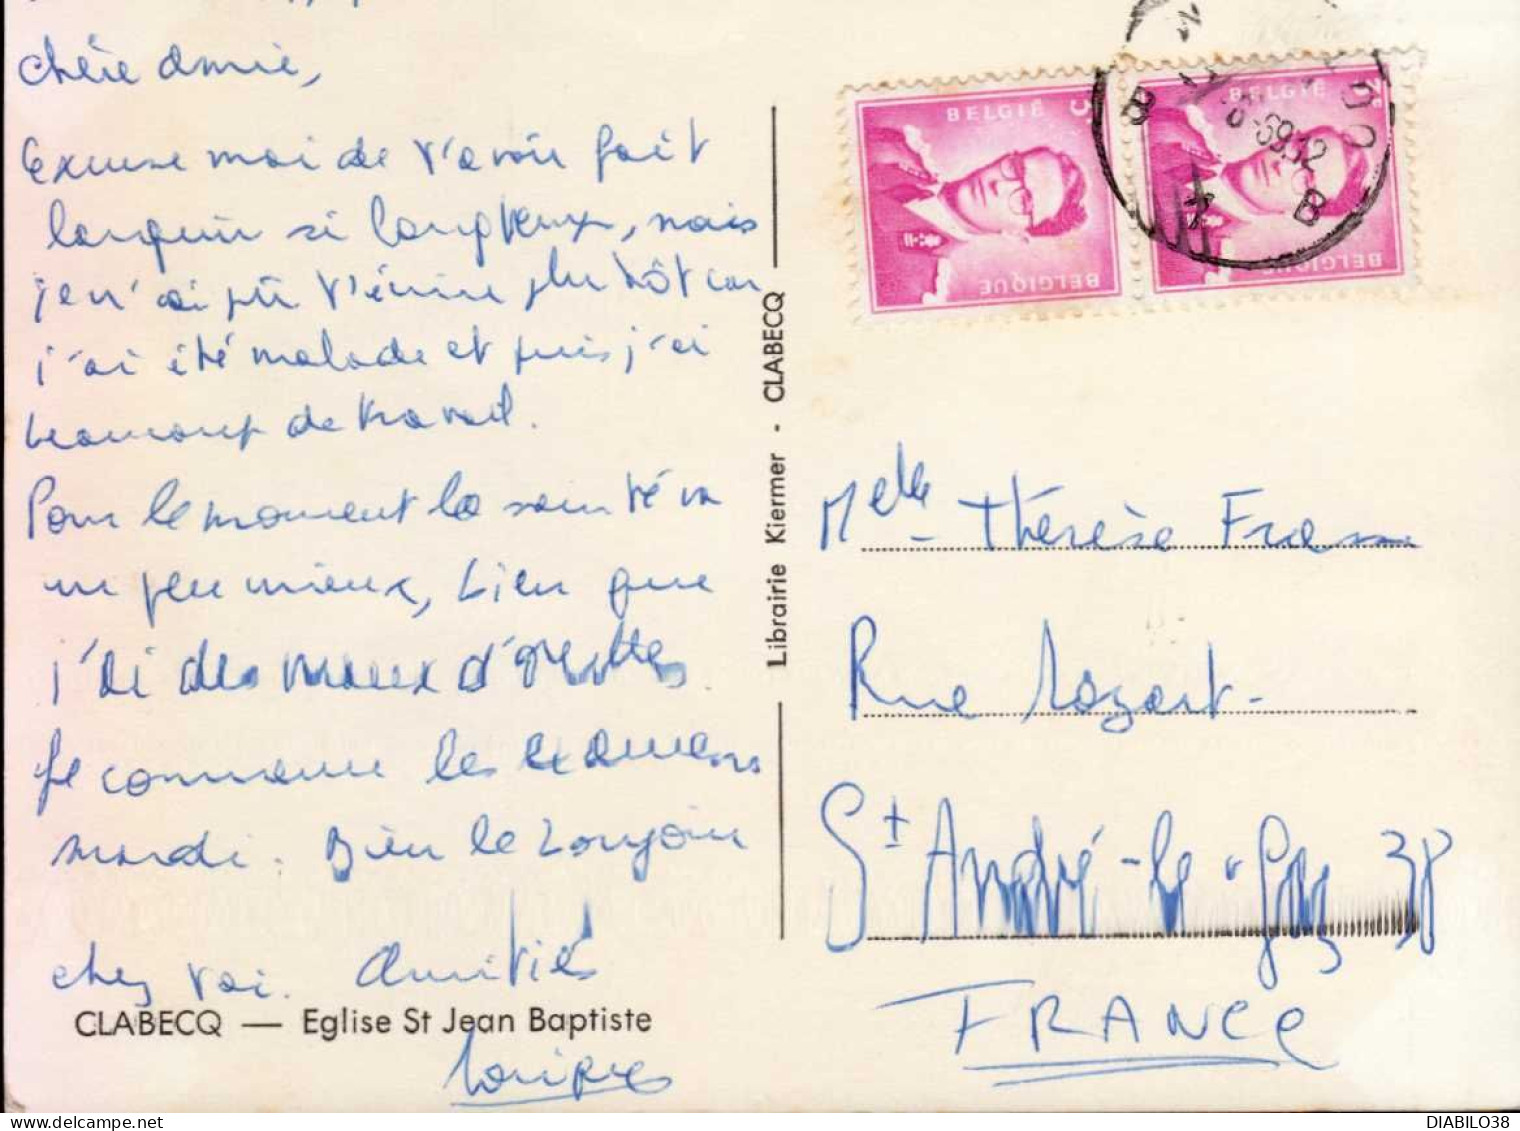 Chère amie,
Excuse moi de t'avoir fait
languir si longtemps, mais
je n'ai pû t'écrire plutôt car
j'ai été malade et puis j'ai
beaucoup de travail.
Pour le moment la santé va
un peu mieux, bien que
j'ai des maux d'
Je commence les examens
mardi. Bien le bonjour
chez toi. Amitiés
CLABECQ — Eglise St Jean Baptiste
Librairie Kiermer - CLABECQ
BELGIË 3F
BELGIQUE
BELGIË 3F
BELGIQUE
B B
Melle Thérèse
Rue Mozart
St André-le-Gaz 38
FRANCE
DIABILO38